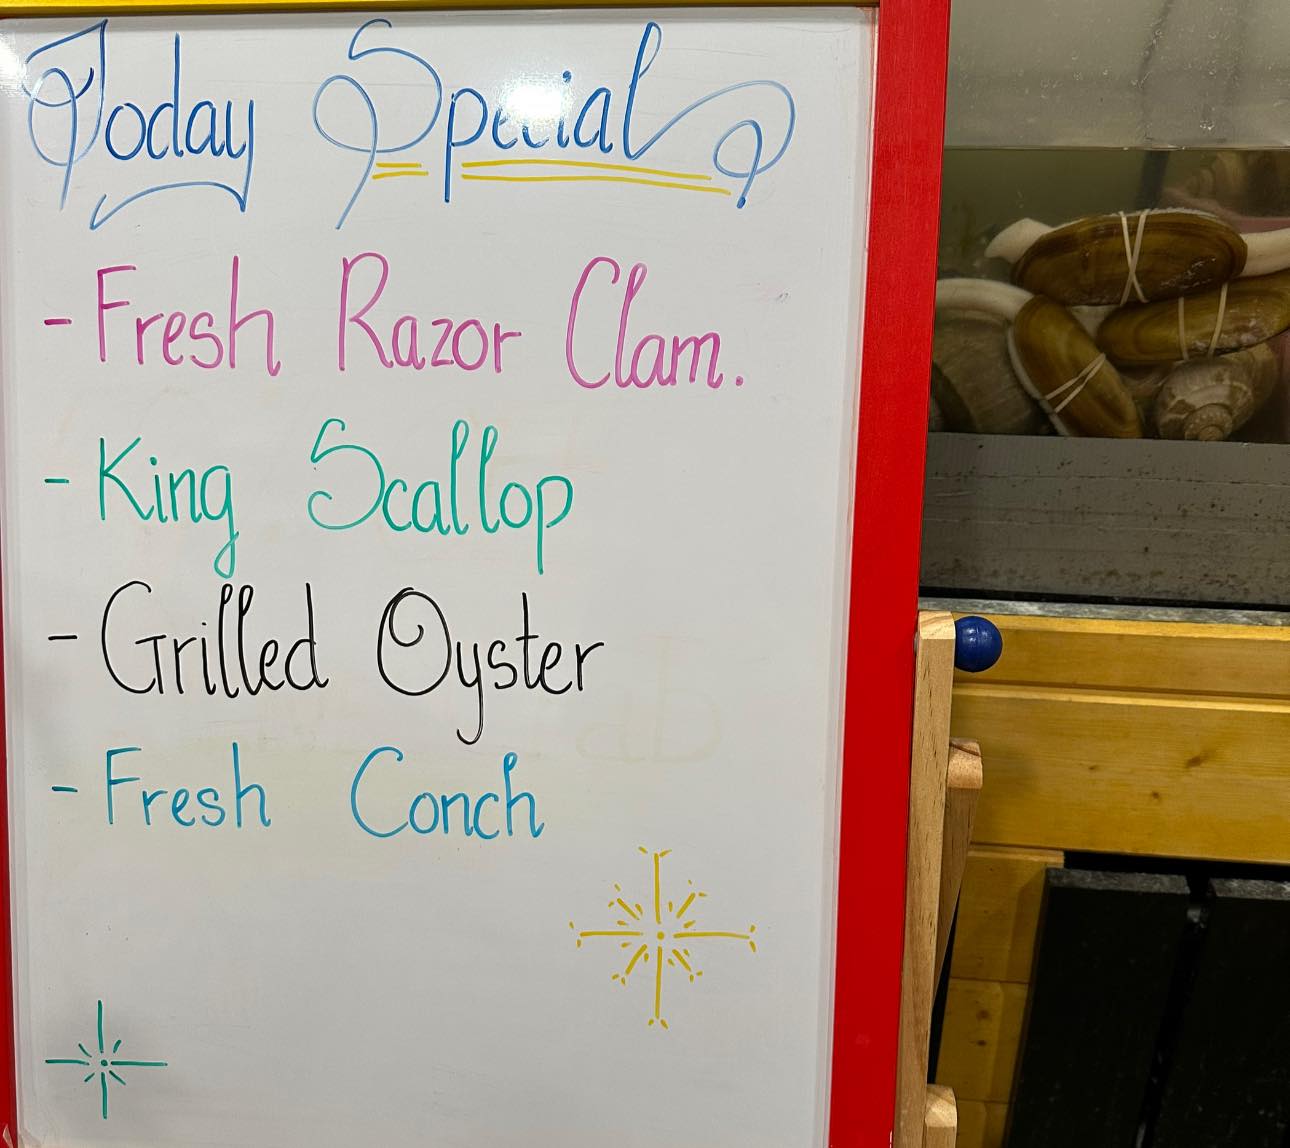 Today Special
- Fresh Razor Clam.
- King Scallop
- Grilled Oyster
- Fresh Conch